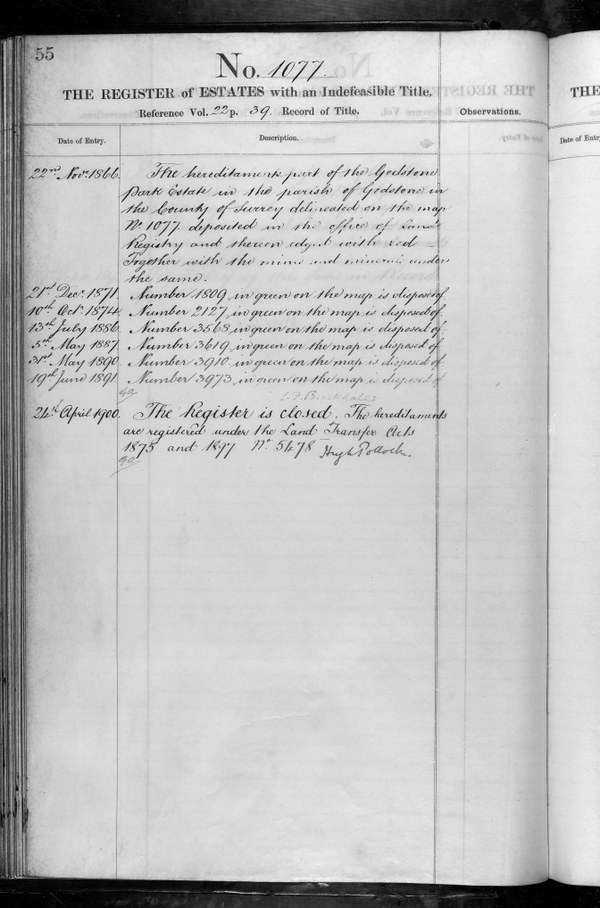 55
No. 1077
THE REGISTER of ESTATES with an Indefeasible Title.
Reference Vol. 22 p. 39. Record of Title.
Observations.
Date of Entry.
Description.
22nd Novr. 1866. The hereditaments part of the Godstone
Park Estate in the parish of Godstone in
the County of Surrey delineated on the map
No. 1077. deposited in the office of Land
Registry and thereon edged with red
Together with the mines and minerals under
the same.
21st Decr. 1871. Number 1809 in green on the map is disposed of
10th Octr. 1874. Number 2127 in green on the map is disposed of
13th July 1886. Number 3568 in green on the map is disposed of
5th May 1887. Number 3619 in green on the map is disposed of
31st May 1890. Number 3910 in green on the map is disposed of
19th June 1891. Number 3973 in green on the map is disposed of
24th April 1900. The Register is closed. The hereditaments
are registered under the Land Transfer Acts
1875 and 1897 No. 5478 Hugh Pollock.
THE
Date of Entry